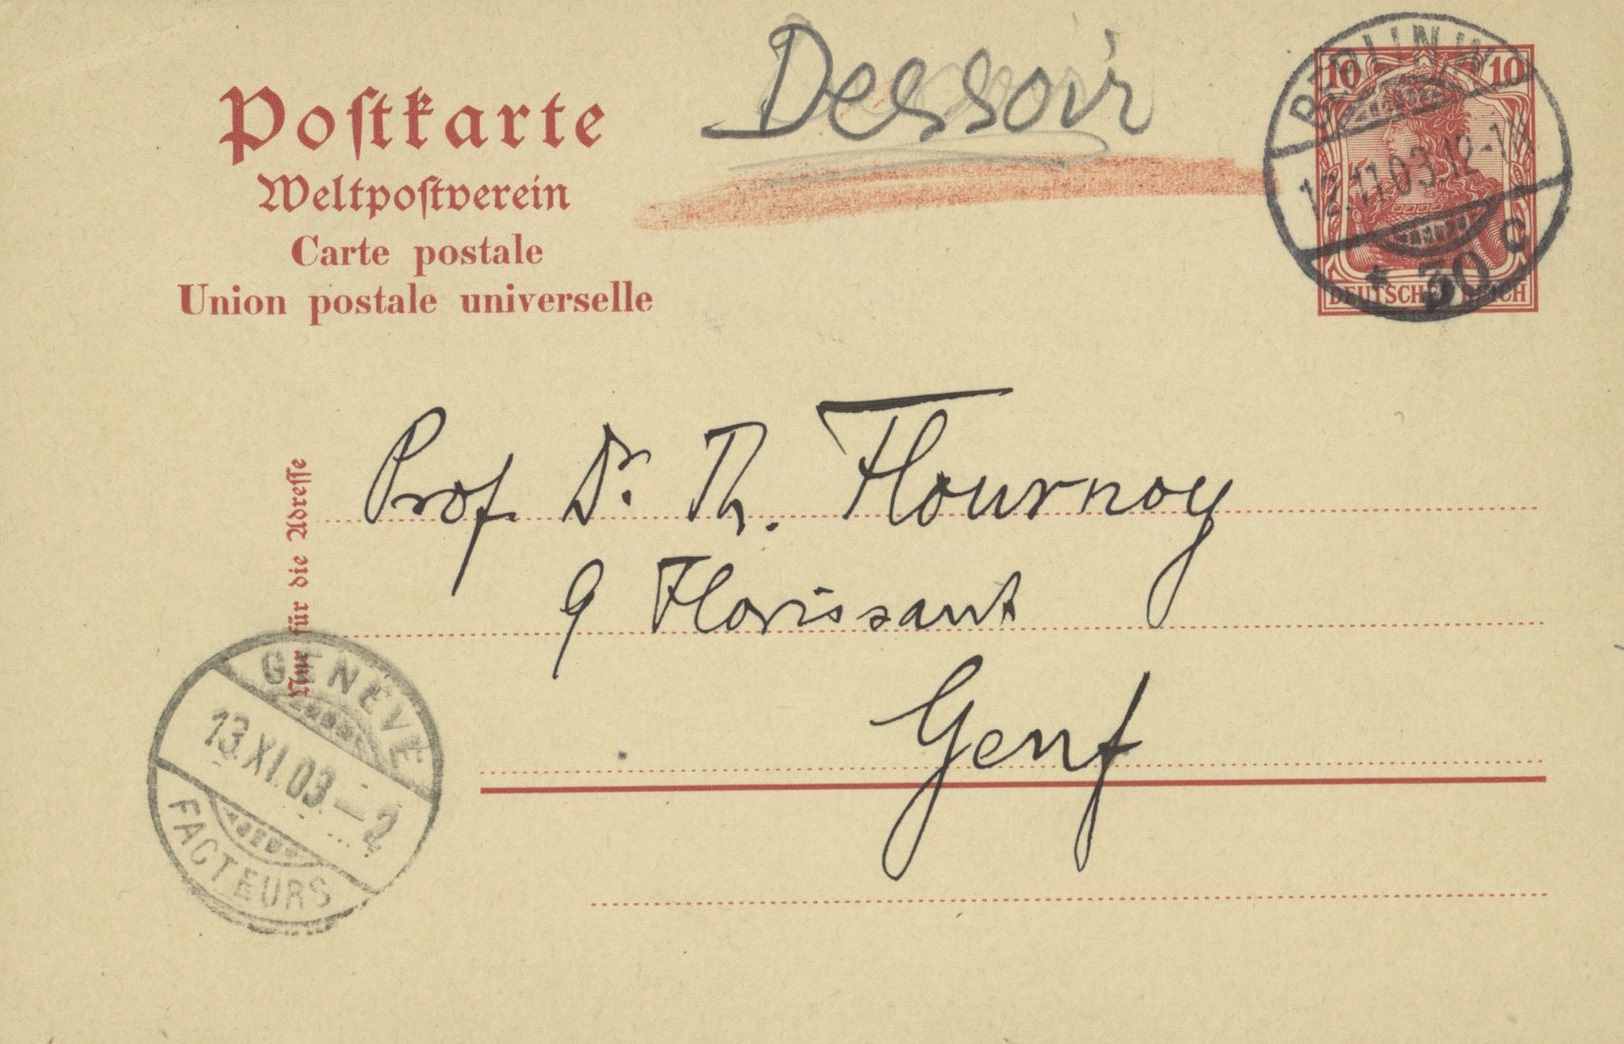 Poſtkarte
Weltpoſtverein
Carte postale
Union postale universelle
Dessoir
BERLIN, W.
12.11.03.12-1N
* 30 c
10 10
DEUTSCHES REICH
Prof. Dr. Th. Flournoy
9 Florissant
Genf
Nur für die Adreſſe
GENÈVE
13.XI.03-2
FACTEURS